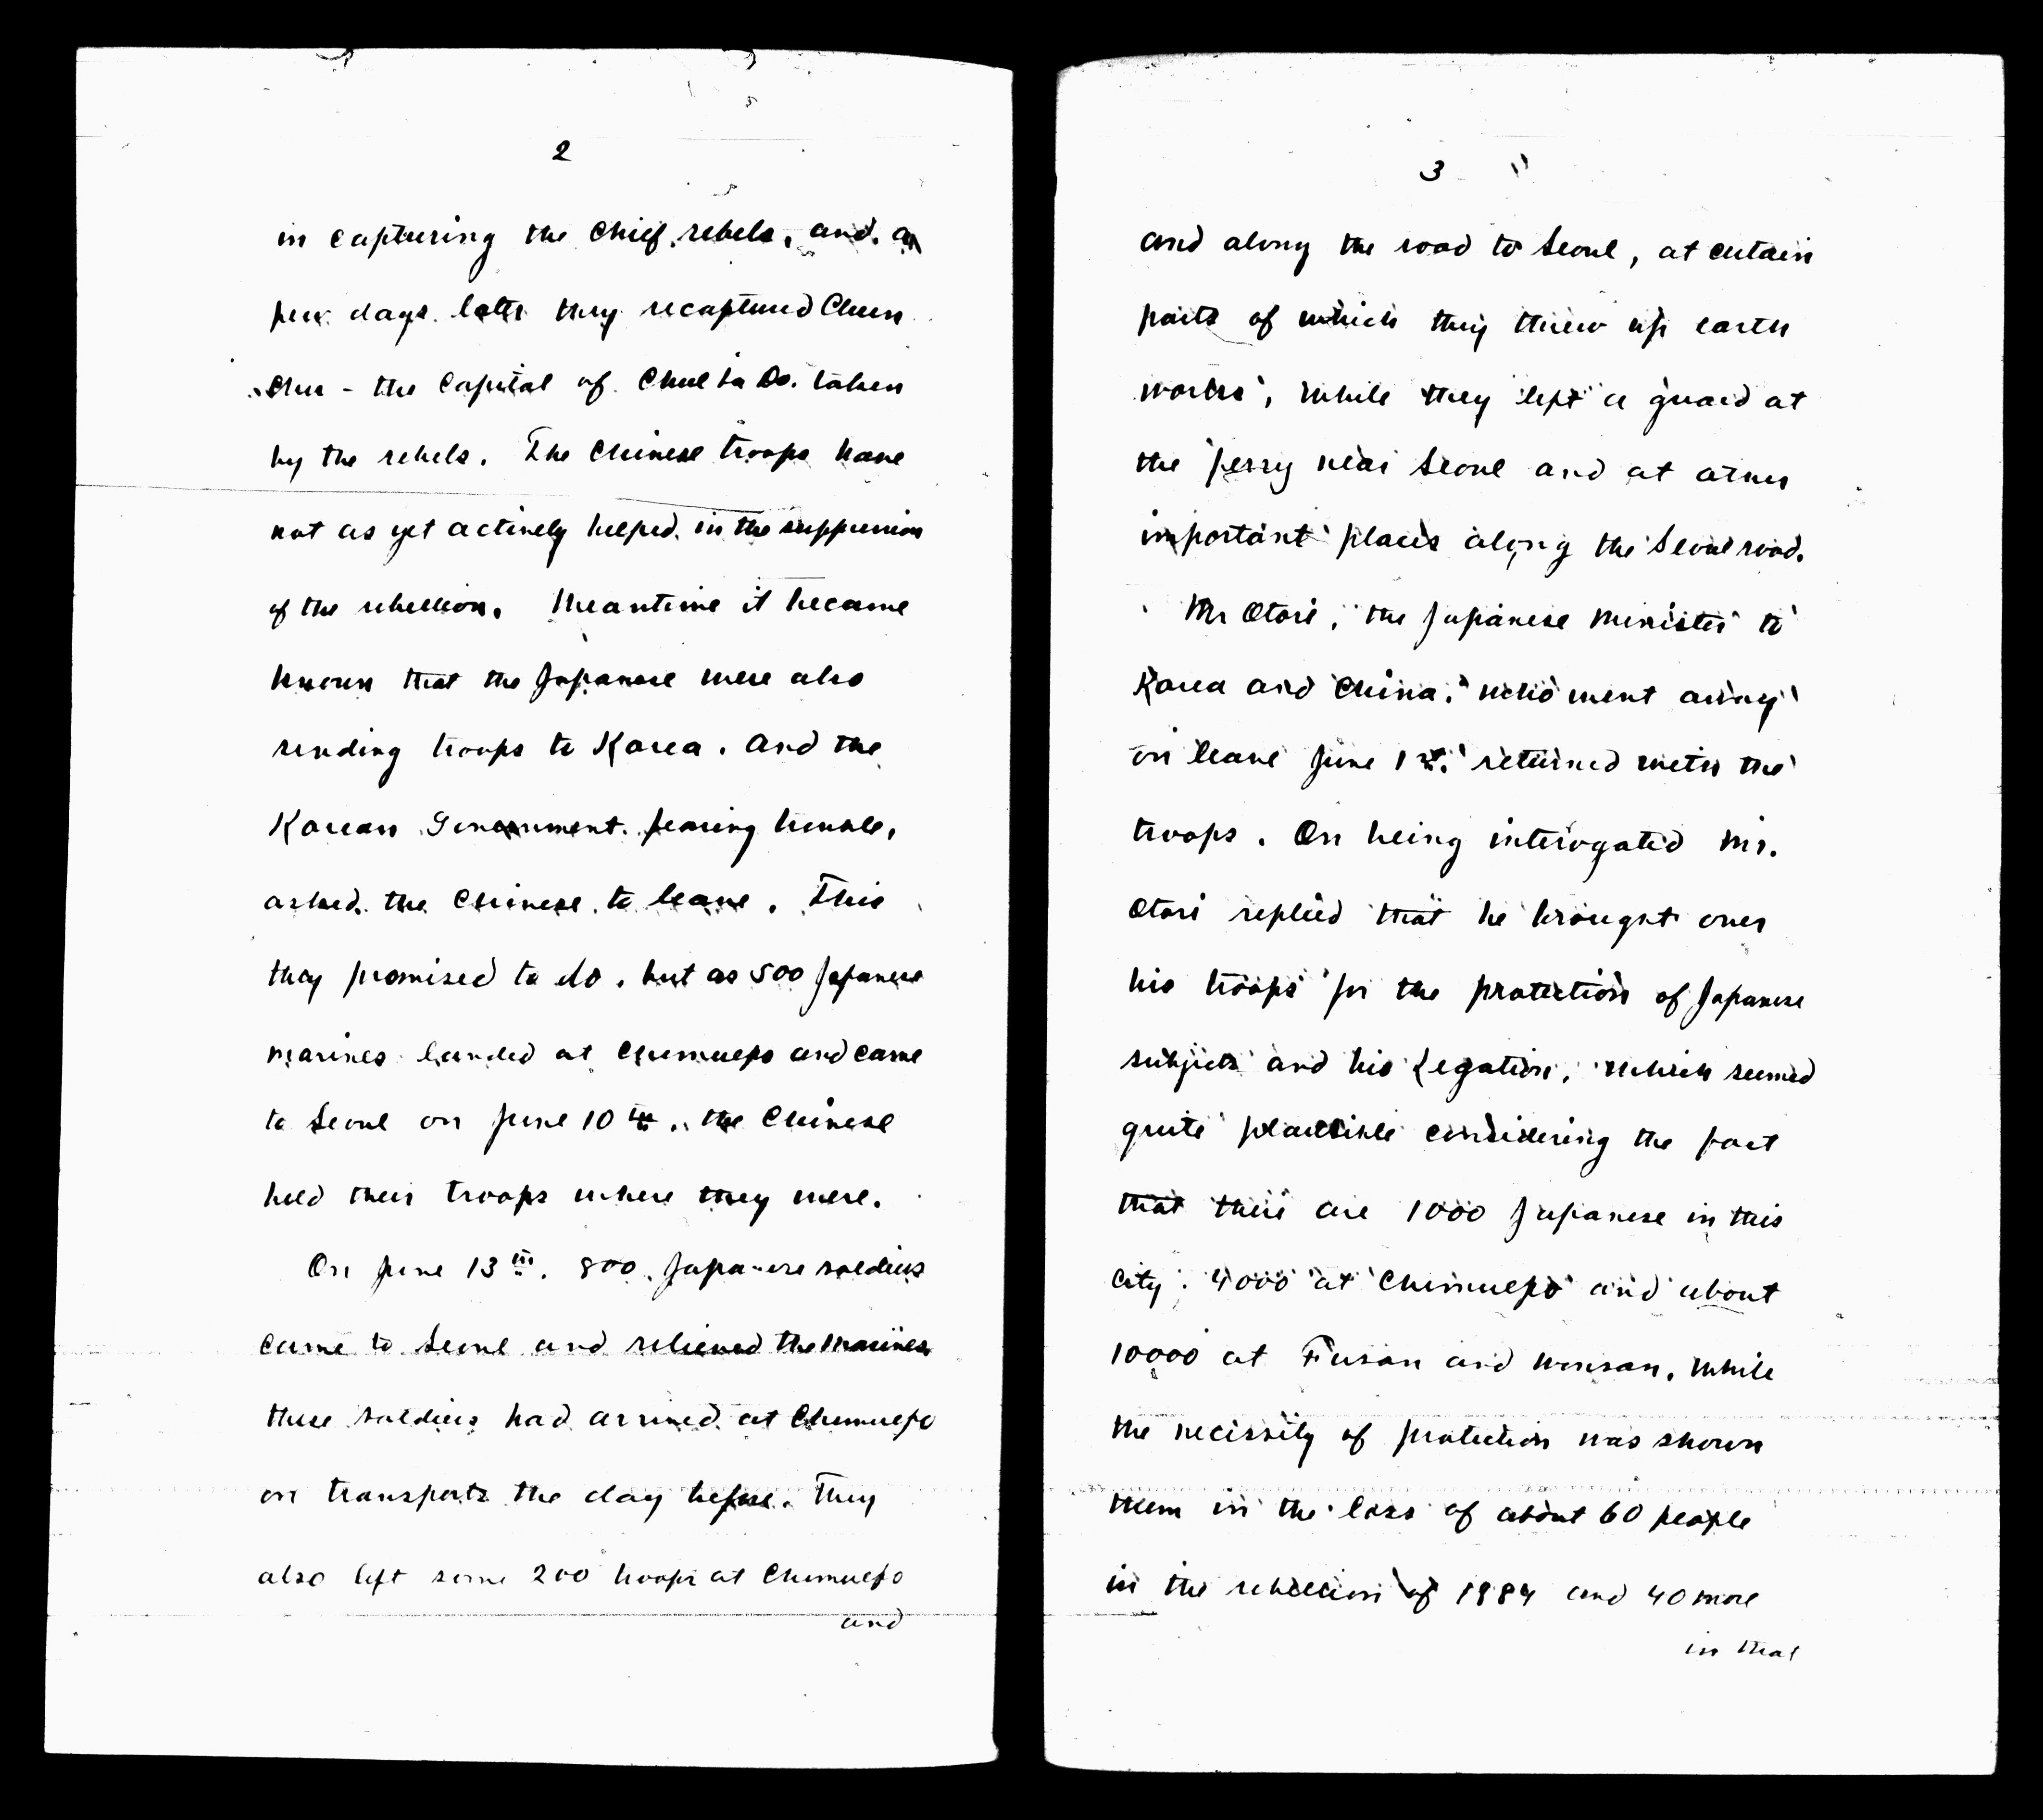 2
in capturing the Chief rebels, and a
few days later they recaptured Chun
Chu - the Capital of Chulla Do. taken
by the rebels. The Chinese troops have
not as yet actively helped in the suppression
of the rebellion. Meantime it became
known that the Japanese were also
sending troops to Korea. And the
Korean Government fearing trouble,
asked the Chinese to leave. This
they promised to do, but as 500 Japanese
marines landed at Chemulpo and came
to Seoul on June 10th, the Chinese
held their troops where they were.
On June 13th. 800 Japanese soldiers
came to Seoul and relieved the Marines
these soldiers had arrived at Chemulpo
on transports the day before. They
also left some 200 troops at Chemulpo
and
3
and along the road to Seoul, at certain
parts of which they threw up earth
works, while they left a guard at
the ferry near Seoul and at other
important places along the Seoul road.
Mr Otori, the Japanese Minister to
Korea and China, who went away
on leave June 1st, returned with the
troops. On being interogated Mr.
Otori replied that he brought over
his troops for the protection of Japanese
subjects and his Legation, which seemed
quite plausible considering the fact
that there are 1000 Japanese in this
city, 4000 at Chemulpo and about
10000 at Fusan and Wonsan, while
the necissity of protection was shown
them in the loss of about 60 people
in the rebellion of 1884 and 40 more
in that